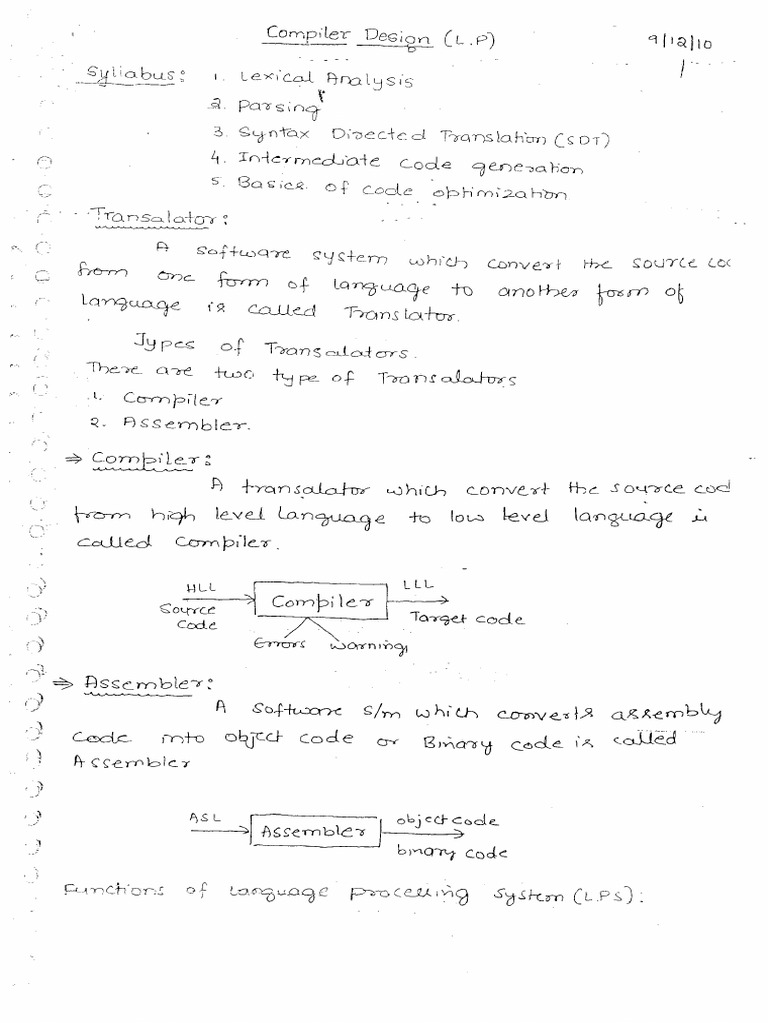 Compiler Design (L.P)
9/12/10
1
Syllabus: 1. Lexical Analysis
2. Parsing
3. Syntax Directed Translation (SDT)
4. Intermediate code generation
5. Basics of code optimization
Transalator:
A software system which convert the source coc
from one form of language to another form of
language is called Translator.
Types of Transalators.
There are two type of Transalators
1. Compiler
2. Assembler.
⇒ Compiler:
A transalator which convert the source cod
from high level language to low level language is
called Compiler.
HLL
Source
Code
Compiler
LLL
Target code
Errors warnings
⇒ Assembler:
A software s/m which converts assembly
code into object code or Binary code is called
Assembler
ASL
Assembler
object code
binary code
Functions of language processing system (LPS):